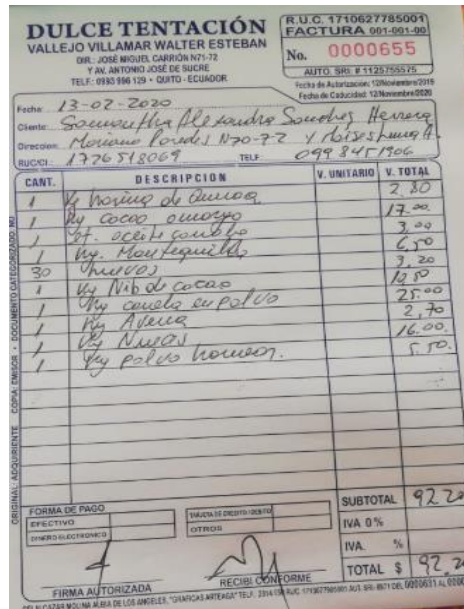 DULCE TENTACIÓN
VALLEJO VILLAMAR WALTER ESTEBAN
DIR.: JOSÉ MIGUEL CARRIÓN N71-72
Y AV. ANTONIO JOSÉ DE SUCRE
TELF.: 0993 996 129 • QUITO - ECUADOR
R.U.C. 1710627785001
FACTURA 001-001-00
No. 0000655
AUTO. SRI: # 1125755575
Fecha de Autorización: 12/Noviembre/2019
Fecha de Caducidad: 12/Noviembre/2020
Fecha: 13-02-2020
Cliente: Samantha Alexandra Sanchez Herrera
Direccion: Mariano Paredes N70-72 y Moises Luna A.
RUC/CI: 1726518069 TELF. 0998451906
CANT. DESCRIPCION V. UNITARIO V. TOTAL
1 Kg harina de Quinoa 2.80
1 Kg Cacao amargo 17.00
1 Lt. aceite 3,00
1 Kg. Mantequilla 6,50
30 huevos 3,20
1 Kg Nib de cacao 10,50
1 Kg canela en polvo 25.00
1 Kg Avena 2,70
1 Kg Nueces 16.00.
1 Kg polvo hornear. 5.50.
ORIGINAL: ADQUIRIENTE COPIA: EMISOR • DOCUMENTO CATEGORIZADO: NO
FORMA DE PAGO
EFECTIVO
DINERO ELECTRONICO
TARJETA DE CREDITO / DEBITO
OTROS
SUBTOTAL 92.20
IVA 0%
IVA. %
TOTAL $ 92.20
FIRMA AUTORIZADA
RECIBI CONFORME
MOLINA ALBIA DE LOS ANGELES, "GRAFICAS ARTEAGA" TELF.